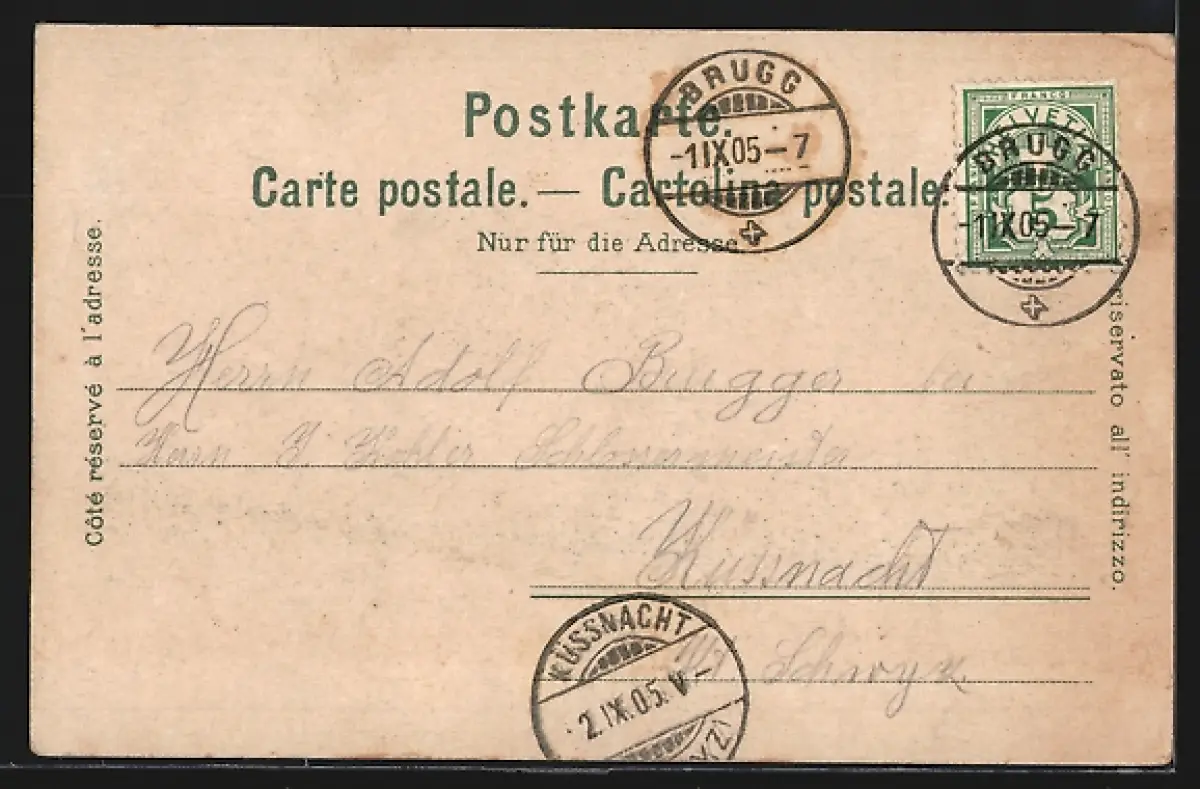 Postkarte.
Carte postale. — Cartolina postale.
Nur für die Adresse
Côté réservé à l'adresse.
riservato all' indirizzo.
BRUGG
-1IX05-7
FRANCO
HELVETIA
5
BRUGG
-1IX05-7
Herrn Adolf Brugger
Herrn J. Kohler Schlossermeister
Küssnacht
Kt Schwyz
KÜSSNACHT
2.IX.05.V-